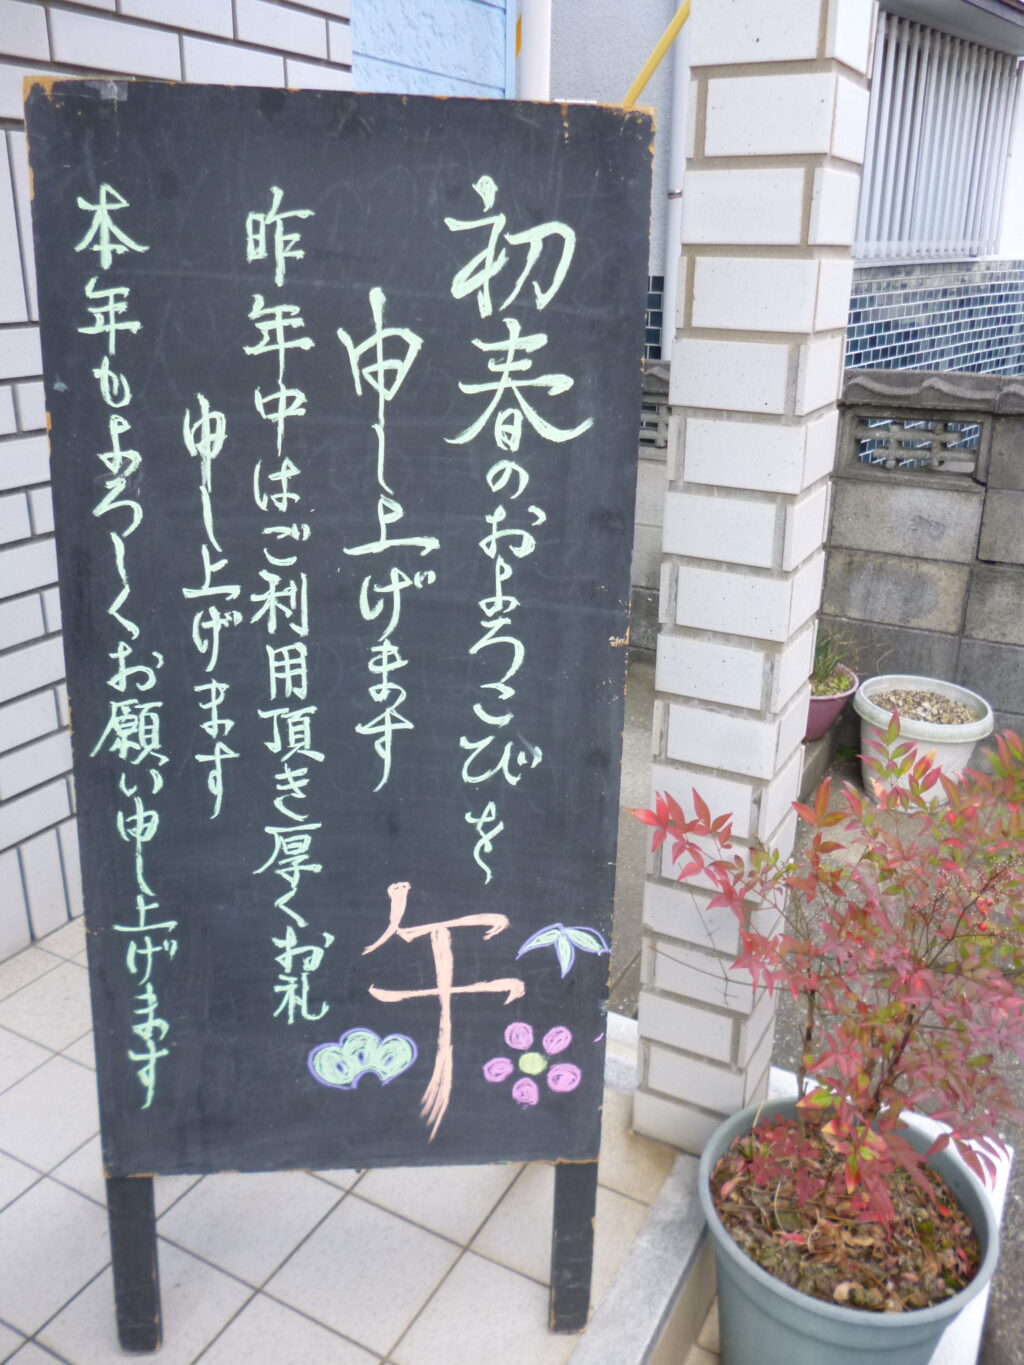 初春のおよろこびを
申し上げます
昨年中はご利用頂き厚くお礼
申し上げます
本年もよろしくお願い申し上げます
午